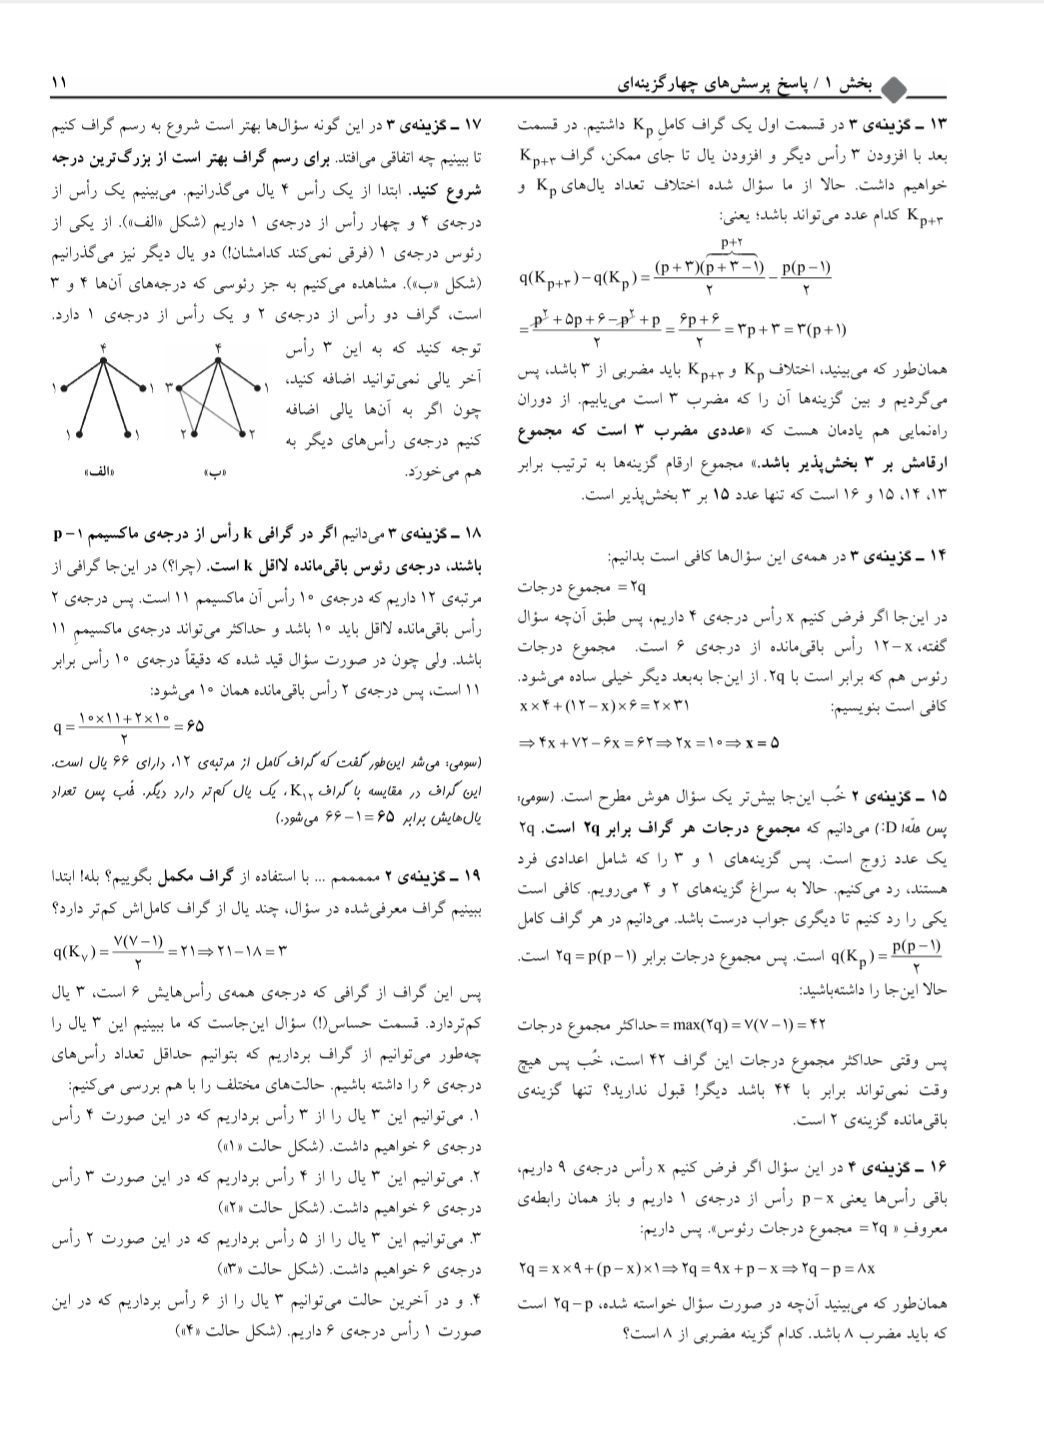 بخش ۱ / پاسخ پرسش‌های چهارگزینه‌ای
۱۱
۱۳ ـ گزینه‌ی ۳ در قسمت اول یک گراف کامل K_p داشتیم. در قسمت
بعد با افزودن ۳ رأس دیگر و افزودن یال تا جای ممکن، گراف K_{p+۳}
خواهیم داشت. حالا از ما سؤال شده اختلاف تعداد یال‌های K_p و
K_{p+۳} کدام عدد می‌تواند باشد؛ یعنی:
p+۲
q(K_{p+۳})−q(K_p) = (p+۳)(p+۳−۱)/۲ − p(p−۱)/۲
= (p²+۵p+۶−p²+p)/۲ = (۶p+۶)/۲ = ۳p+۳ = ۳(p+۱)
همان‌طور که می‌بینید، اختلاف K_p و K_{p+۳} باید مضربی از ۳ باشد، پس
می‌گردیم و بین گزینه‌ها آن را که مضرب ۳ است می‌یابیم. از دوران
راه‌نمایی هم یادمان هست که «عددی مضرب ۳ است که مجموع
ارقامش بر ۳ بخش‌پذیر باشد.» مجموع ارقام گزینه‌ها به ترتیب برابر
۱۳، ۱۴، ۱۵ و ۱۶ است که تنها عدد ۱۵ بر ۳ بخش‌پذیر است.
۱۴ ـ گزینه‌ی ۳ در همه‌ی این سؤال‌ها کافی است بدانیم:
مجموع درجات = ۲q
در این‌جا اگر فرض کنیم x رأس درجه‌ی ۴ داریم، پس طبق آن‌چه سؤال
گفته، ۱۲−x رأس باقی‌مانده از درجه‌ی ۶ است. مجموع درجات
رئوس هم که برابر است با ۲q. از این‌جا به‌بعد دیگر خیلی ساده می‌شود.
کافی است بنویسیم: x×۴+(۱۲−x)×۶=۲×۳۱
⇒ ۴x+۷۲−۶x=۶۲ ⇒ ۲x=۱۰ ⇒ x=۵
۱۵ ـ گزینه‌ی ۲ خُب این‌جا بیش‌تر یک سؤال هوش مطرح است. (سومی:
پس حلّه! D:) می‌دانیم که مجموع درجات هر گراف برابر ۲q است. ۲q
یک عدد زوج است. پس گزینه‌های ۱ و ۳ را که شامل اعدادی فرد
هستند، رد می‌کنیم. حالا به سراغ گزینه‌های ۲ و ۴ می‌رویم. کافی است
یکی را رد کنیم تا دیگری جواب درست باشد. می‌دانیم در هر گراف کامل
q(K_p) = p(p−۱)/۲ است. پس مجموع درجات برابر ۲q = p(p−۱) است.
حالا این‌جا را داشته‌باشید:
حداکثر مجموع درجات = max(۲q) = ۷(۷−۱) = ۴۲
پس وقتی حداکثر مجموع درجات این گراف ۴۲ است، خُب پس هیچ
وقت نمی‌تواند برابر با ۴۴ باشد دیگر! قبول ندارید؟ تنها گزینه‌ی
باقی‌مانده گزینه‌ی ۲ است.
۱۶ ـ گزینه‌ی ۴ در این سؤال اگر فرض کنیم x رأس درجه‌ی ۹ داریم،
باقی رأس‌ها یعنی p−x رأس از درجه‌ی ۱ داریم و باز همان رابطه‌ی
معروفِ «۲q = مجموع درجات رئوس». پس داریم:
۲q = x×۹+(p−x)×۱ ⇒ ۲q = ۹x+p−x ⇒ ۲q−p = ۸x
همان‌طور که می‌بینید آن‌چه در صورت سؤال خواسته شده، ۲q−p است
که باید مضرب ۸ باشد. کدام گزینه مضربی از ۸ است؟
۱۷ ـ گزینه‌ی ۳ در این گونه سؤال‌ها بهتر است شروع به رسم گراف کنیم
تا ببینیم چه اتفاقی می‌افتد. برای رسم گراف بهتر است از بزرگ‌ترین درجه
شروع کنید. ابتدا از یک رأس ۴ یال می‌گذرانیم. می‌بینیم یک رأس از
درجه‌ی ۴ و چهار رأس از درجه‌ی ۱ داریم (شکل «الف»). از یکی از
رئوس درجه‌ی ۱ (فرقی نمی‌کند کدامشان!) دو یال دیگر نیز می‌گذرانیم
(شکل «ب»). مشاهده می‌کنیم به جز رئوسی که درجه‌های آن‌ها ۴ و ۳
است، گراف دو رأس از درجه‌ی ۲ و یک رأس از درجه‌ی ۱ دارد.
توجه کنید که به این ۳ رأس
آخر یالی نمی‌توانید اضافه کنید،
چون اگر به آن‌ها یالی اضافه
کنیم درجه‌ی رأس‌های دیگر به
هم می‌خورَد.
۴
۳
۱
۲
۲
«ب»
۴
۱
۱
۱
۱
«الف»
۱۸ ـ گزینه‌ی ۳ می‌دانیم اگر در گرافی k رأس از درجه‌ی ماکسیمم p−۱
باشند، درجه‌ی رئوس باقی‌مانده لااقل k است. (چرا؟) در این‌جا گرافی از
مرتبه‌ی ۱۲ داریم که درجه‌ی ۱۰ رأس آن ماکسیمم ۱۱ است. پس درجه‌ی ۲
رأس باقی‌مانده لااقل باید ۱۰ باشد و حداکثر می‌تواند درجه‌ی ماکسیممِ ۱۱
باشد. ولی چون در صورت سؤال قید شده که دقیقاً درجه‌ی ۱۰ رأس برابر
۱۱ است، پس درجه‌ی ۲ رأس باقی‌مانده همان ۱۰ می‌شود:
q = (۱۰×۱۱+۲×۱۰)/۲ = ۶۵
(سومی: می‌شد این‌طور گفت که گراف کامل از مرتبه‌ی ۱۲، دارای ۶۶ یال است.
این گراف در مقایسه با گراف K_{۱۲}، یک یال کم‌تر دارد دیگر. خُب پس تعداد
یال‌هایش برابر ۶۵=۱−۶۶ می‌شود.)
۱۹ ـ گزینه‌ی ۲ ممممم ... با استفاده از گراف مکمل بگوییم؟ بله! ابتدا
ببینیم گراف معرفی‌شده در سؤال، چند یال از گراف کامل‌اش کم‌تر دارد؟
q(K_۷) = ۷(۷−۱)/۲ = ۲۱ ⇒ ۲۱−۱۸ = ۳
پس این گراف از گرافی که درجه‌ی همه‌ی رأس‌هایش ۶ است، ۳ یال
کم‌تردارد. قسمت حساس(!) سؤال این‌جاست که ما ببینیم این ۳ یال را
چه‌طور می‌توانیم از گراف برداریم که بتوانیم حداقل تعداد رأس‌های
درجه‌ی ۶ را داشته باشیم. حالت‌های مختلف را با هم بررسی می‌کنیم:
۱. می‌توانیم این ۳ یال را از ۳ رأس برداریم که در این صورت ۴ رأس
درجه‌ی ۶ خواهیم داشت. (شکل حالت «۱»)
۲. می‌توانیم این ۳ یال را از ۴ رأس برداریم که در این صورت ۳ رأس
درجه‌ی ۶ خواهیم داشت. (شکل حالت «۲»)
۳. می‌توانیم این ۳ یال را از ۵ رأس برداریم که در این صورت ۲ رأس
درجه‌ی ۶ خواهیم داشت. (شکل حالت «۳»)
۴. و در آخرین حالت می‌توانیم ۳ یال را از ۶ رأس برداریم که در این
صورت ۱ رأس درجه‌ی ۶ داریم. (شکل حالت «۴»)